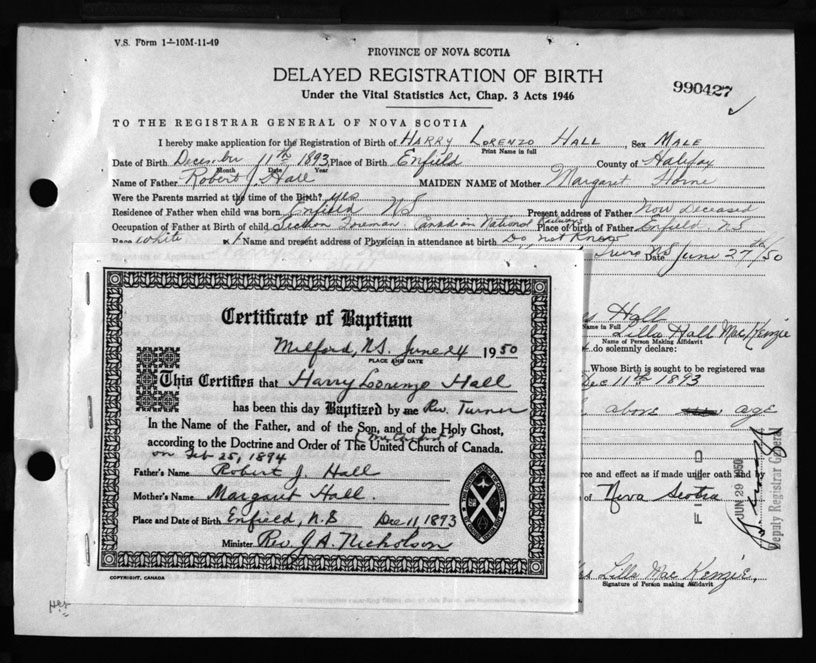 V.S. Form 1—10M-11-49
PROVINCE OF NOVA SCOTIA
DELAYED REGISTRATION OF BIRTH
Under the Vital Statistics Act, Chap. 3 Acts 1946
990427
TO THE REGISTRAR GENERAL OF NOVA SCOTIA
I hereby make application for the Registration of Birth of HARRY LORENZO HALL, Sex MALE
Print Name in full
Date of Birth December 11th 1893, Place of Birth Enfield County of Halifax
Month Date Year
Name of Father Robert J. Hall MAIDEN NAME of Mother Margaret Horne
Were the Parents married at the time of the Birth? yes
Residence of Father when child was born Enfield NS Present address of Father Now deceased
Occupation of Father at Birth of child Section Foreman Canadian National Railways Place of birth of Father Enfield NS
Race White Name and present address of Physician in attendance at birth Do not Know
Truro NS Date June 27th/50
Hall
Name in Full
Lilla Hall MacKenzie
Name of Person Making Affidavit
do solemnly declare:
Whose Birth is sought to be registered was
Dec 11th 1893
above age
force and effect as if made under oath and by
of Nova Scotia
FILED
JUN 29 1950
Deputy Registrar General
Lilla MacKenzie
Signature of Person making Affidavit
Certificate of Baptism
Milford, N.S. June 24 1950
PLACE AND DATE
This Certifies that Harry Lorenzo Hall
has been this day Baptized by me Rev. Turner
In the Name of the Father, and of the Son, and of the Holy Ghost,
according to the Doctrine and Order of The United Church of Canada.
on Feb 25, 1894
Father's Name Robert J. Hall
Mother's Name Margaret Hall.
Place and Date of Birth Enfield, N.S Dec 11, 1893
Minister Rev. J.A. Nicholson
COPYRIGHT, CANADA